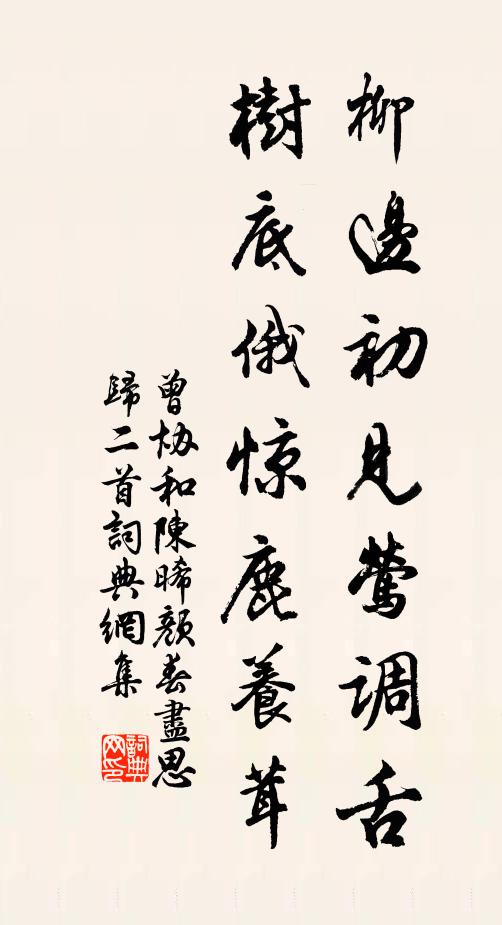 柳邊初見鶯调舌
樹底俄惊鹿養茸
曾协和陳晞顏春盡思
歸二首詞典網集
詞典网印